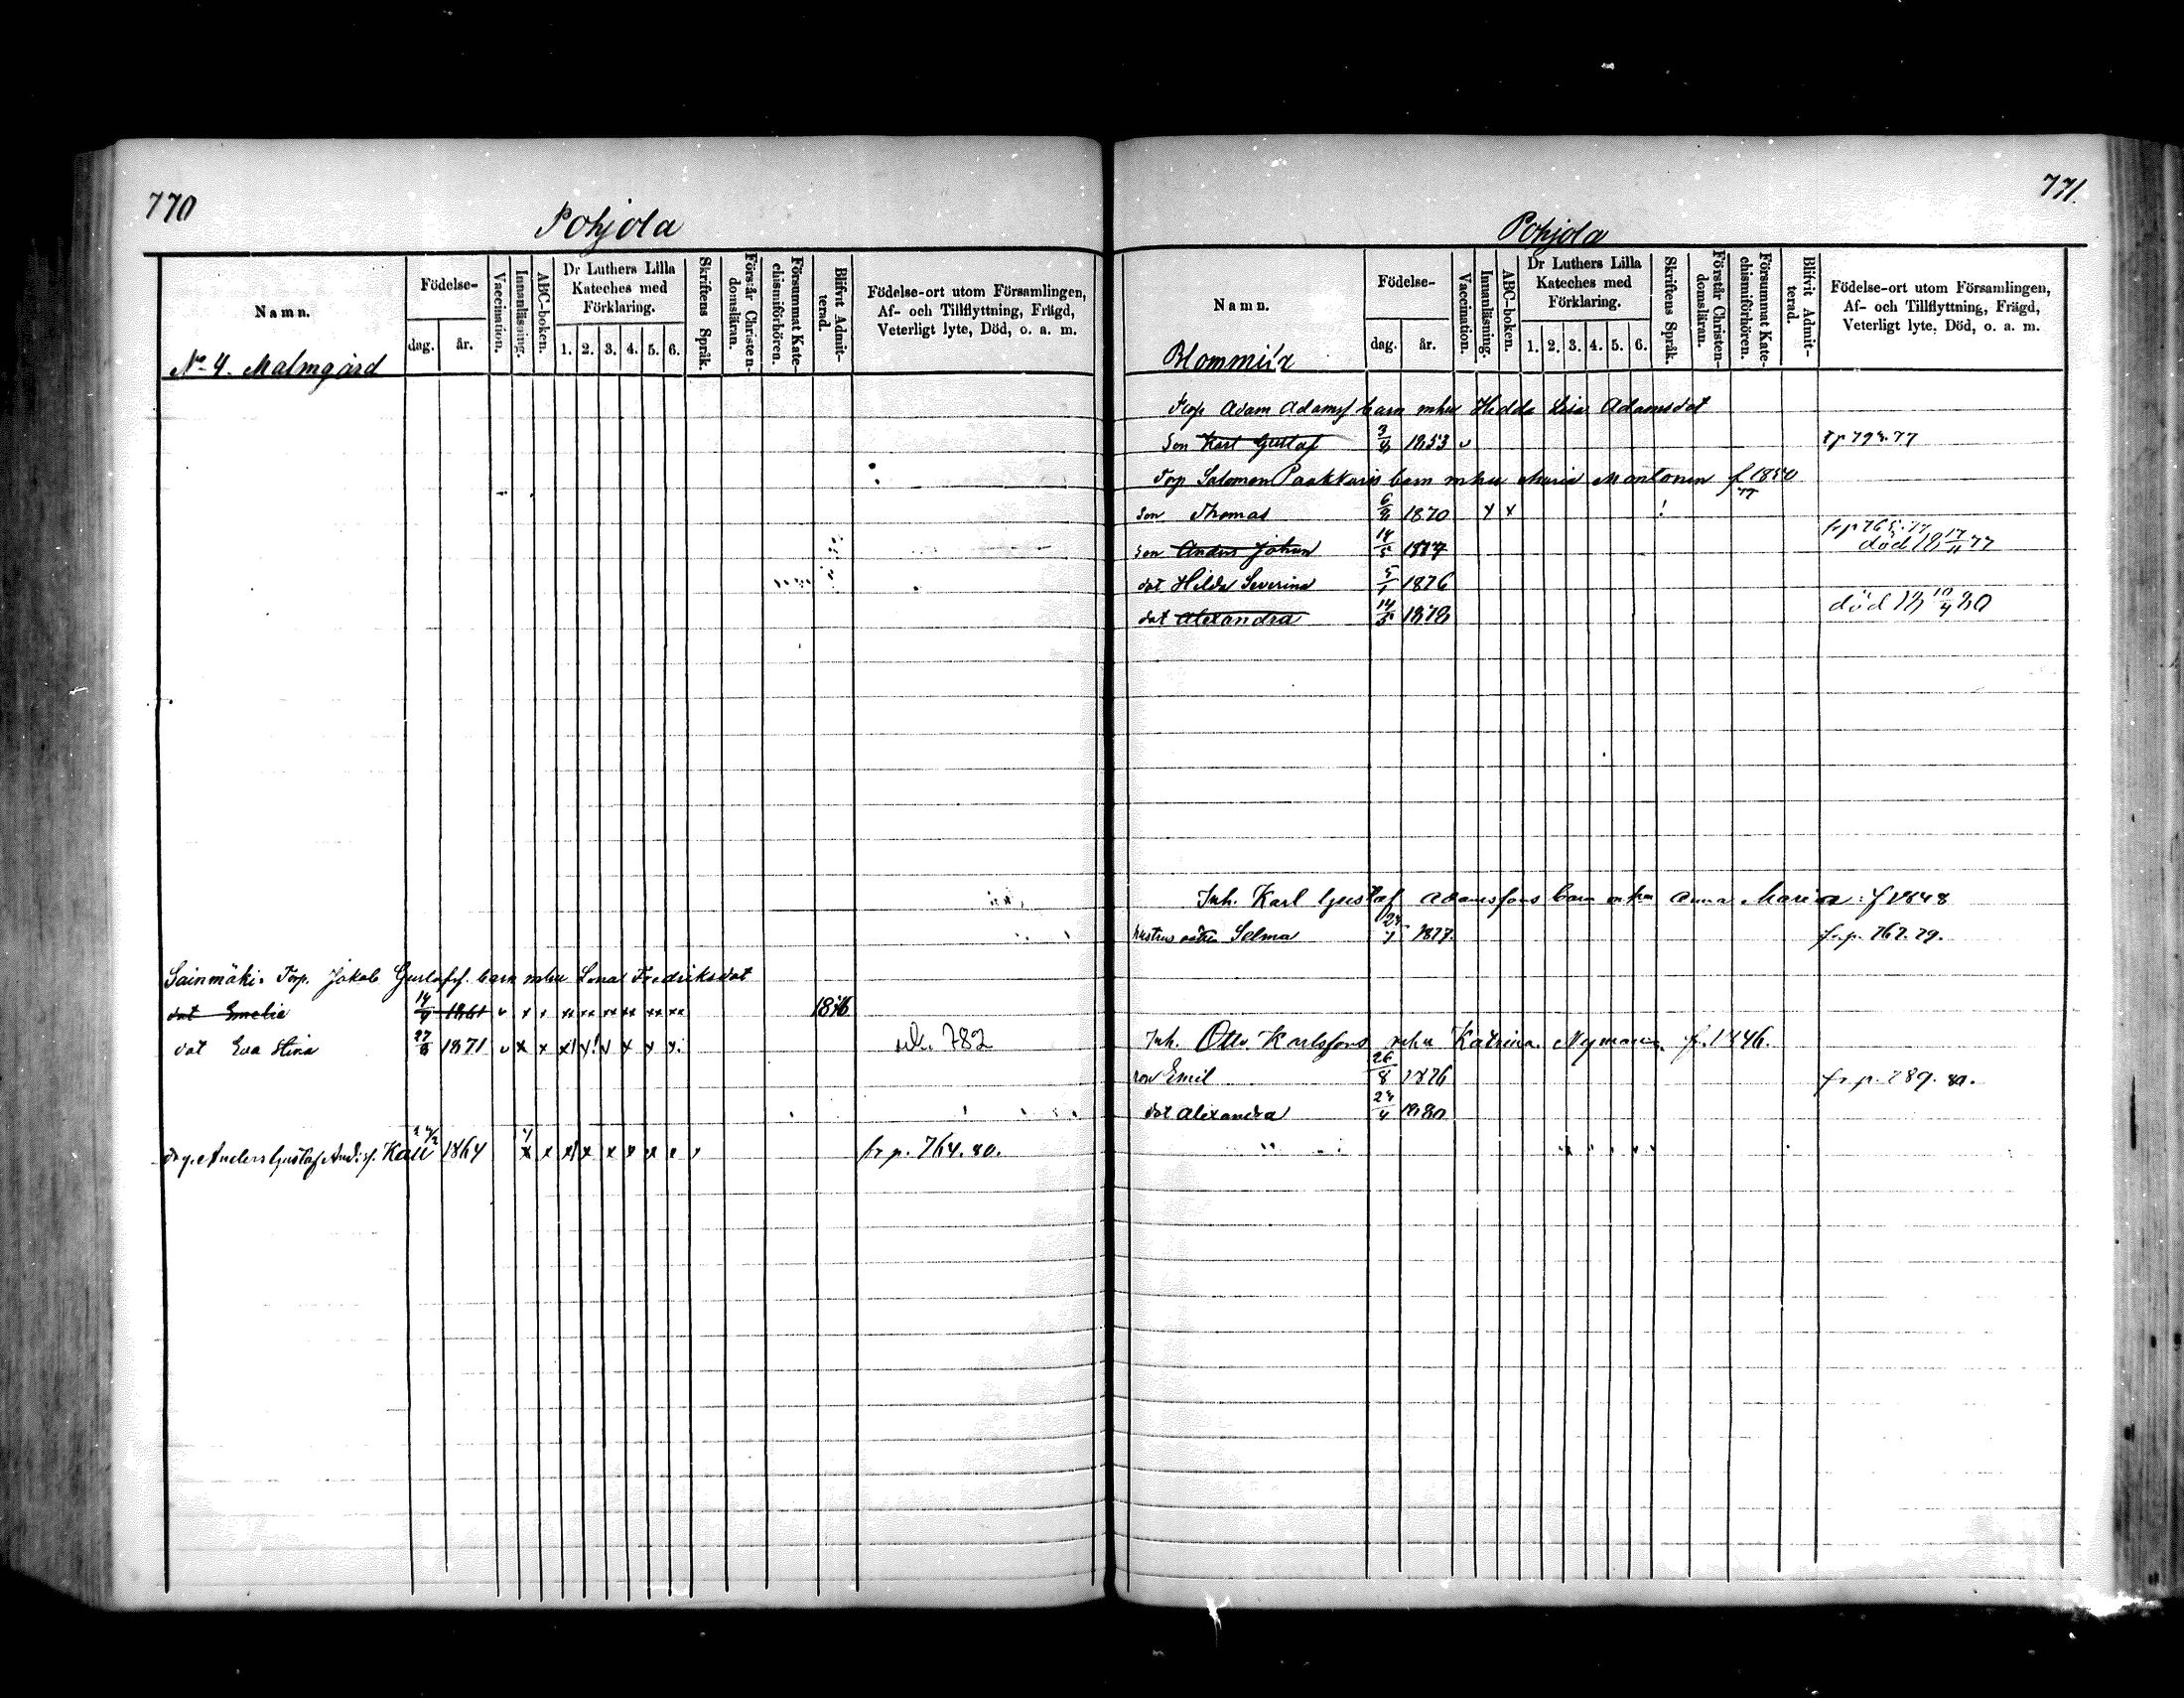 770
Pohjola
Namn.
Födelse-
dag.
år.
Vaccination.
Innanläsning.
ABC-boken.
Dr Luthers Lilla
Kateches med
Förklaring.
1. 2. 3. 4. 5. 6.
Skriftens Språk.
Förstår Christen-
domsläran.
Försummat Kate-
chismiförhören.
Blifvit Admit-
terad.
Födelse-ort utom Församlingen,
Af- och Tillflyttning, Frägd,
Veterligt lyte, Död, o. a. m.
No 4. Malmgård
Sainmäki. Torp. Jakob Gustafsf. barn mhu Lena Fredriksdot
dot Emelie 14/4 1861 v x x xx xx xx xx xx xx 1876
dot Eva Stina 27/8 1871 v x x x! v! v x x x. 782
Anders Gustaf And.sf. Kall 1864 x x x x x x x fr p. 764. 80.
771.
Pohjola
Namn.
Födelse-
dag.
år.
Vaccination.
Innanläsning.
ABC-boken.
Dr Luthers Lilla
Kateches med
Förklaring.
1. 2. 3. 4. 5. 6.
Skriftens Språk.
Förstår Christen-
domsläran.
Försummat Kate-
chismiförhören.
Blifvit Admit-
terad.
Födelse-ort utom Församlingen,
Af- och Tillflyttning, Frägd,
Veterligt lyte, Död, o. a. m.
Torp Adam Adamsf barn mhu Hedda Lisa Adamsdot
Son Karl Gustaf 1853 v
Torp Salomon Paakkaris barn mhu Maria Montonen f 1850
Son Thomas 1870 x x !
fr p 765. 77
Son Anders Johan 14/5 död 18 17/11 77
dot Hilda Severina 5/1 1876
dot Alexandra 14/5 1878 död 18 10/4 80
Inh. Karl Gustaf Adamsfons barn mhu Anna Maria f 1848
Selma 1877. fr.p. 767. 79.
Inh. Otto Karlsfons mhu Katrina Nyman f. 1846.
son Emil 26/8 1876 fr p. 789. 80.
dot Alexandra 1880